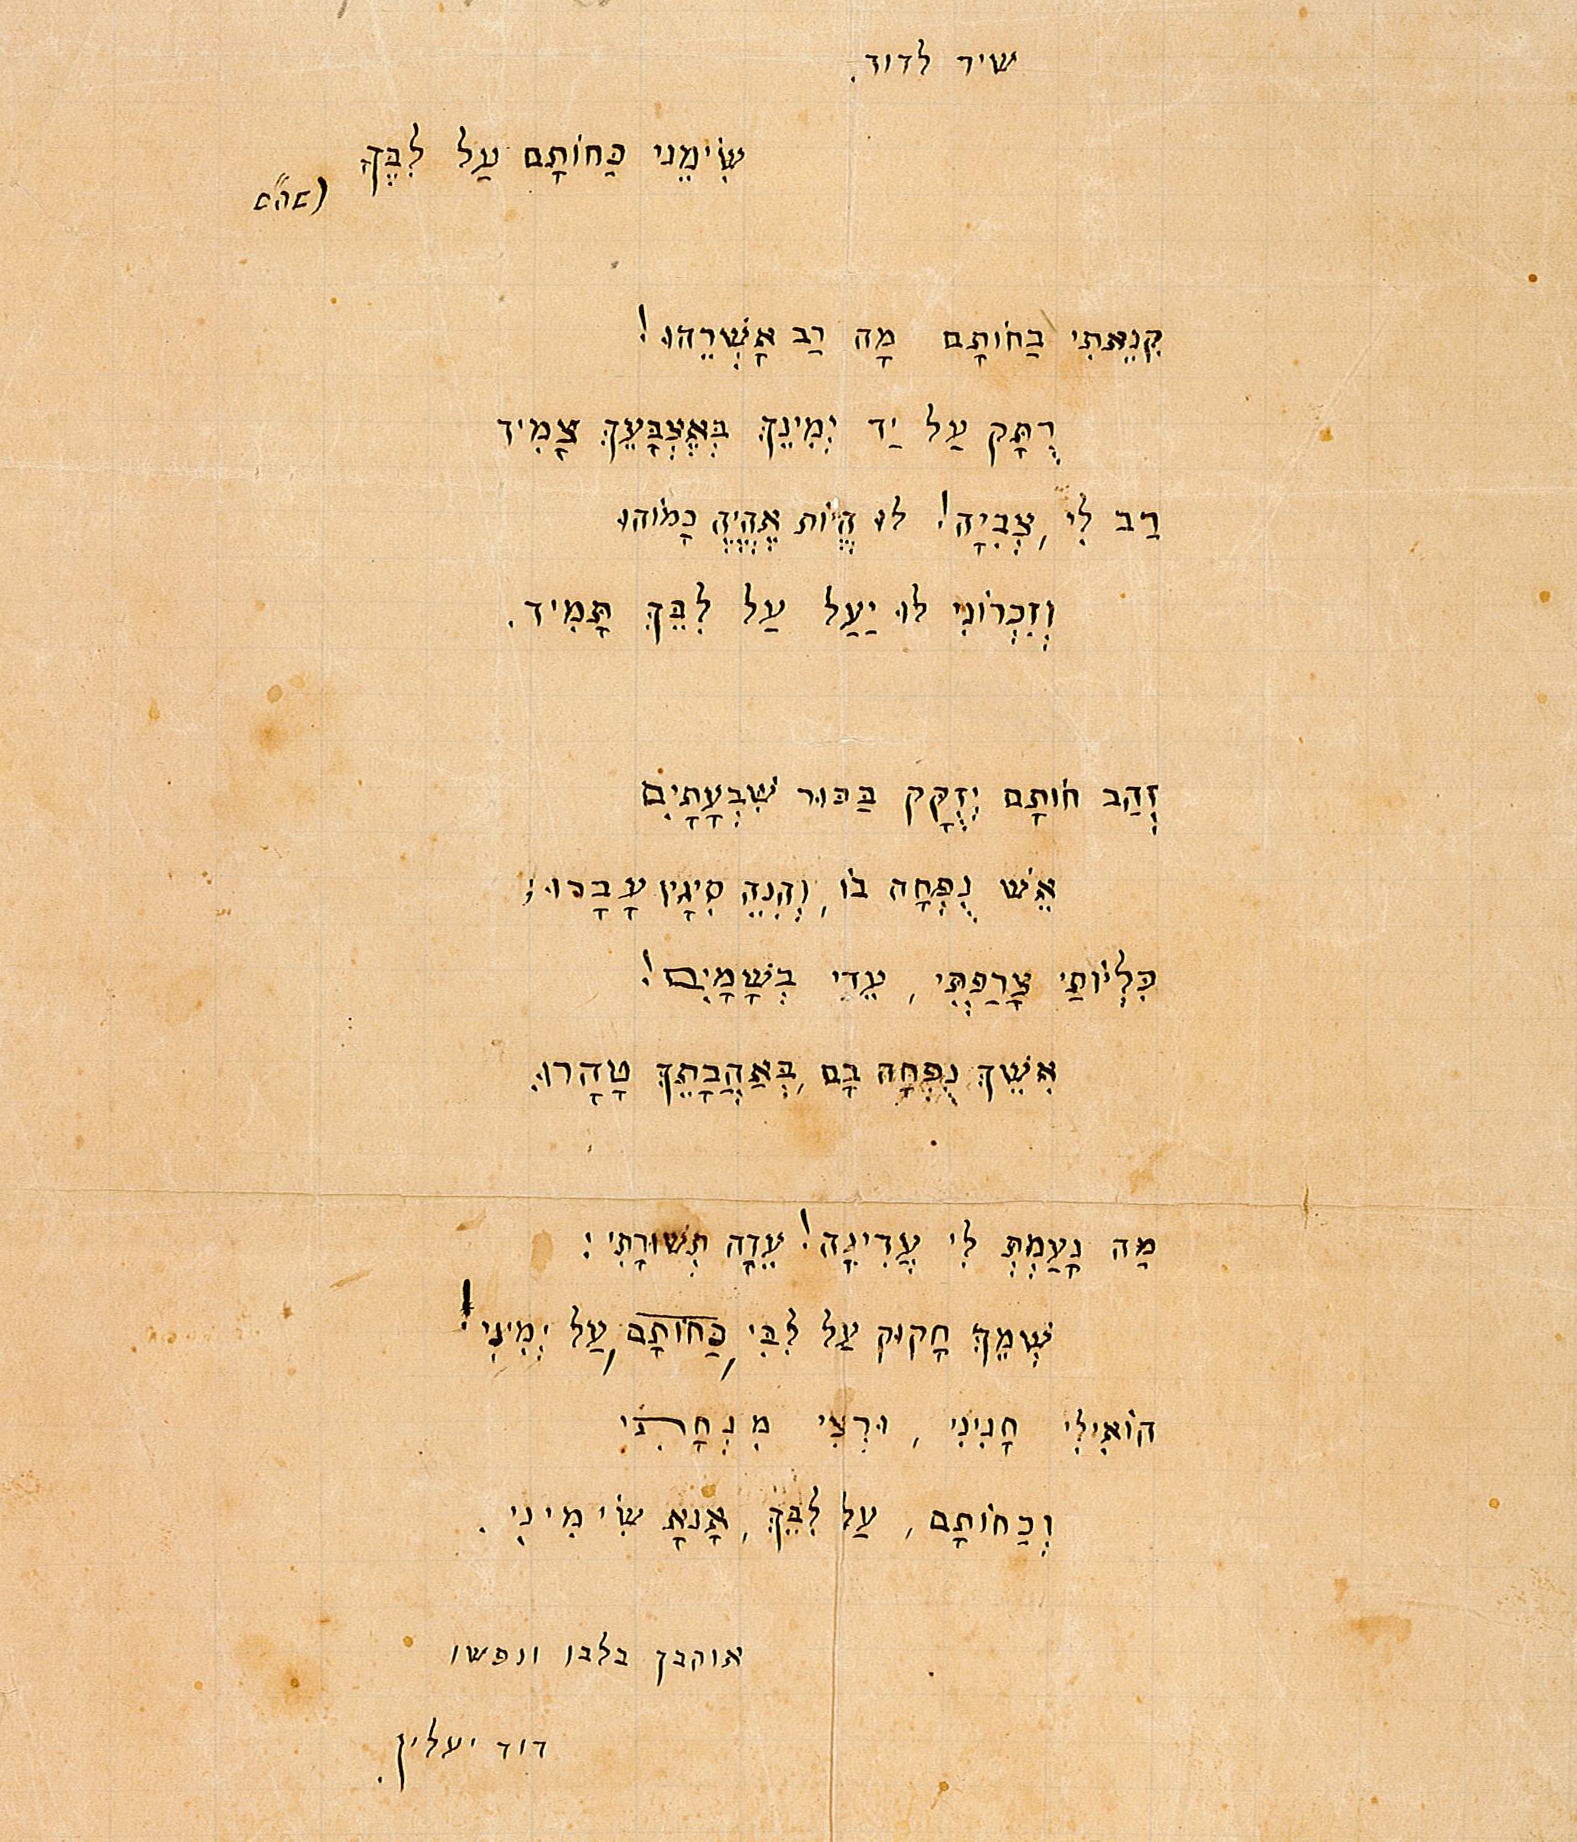 שיר לדוד.
שִׂימֵנִי כַּחוֹתָם עַל לִבֶּךָ
(שה"ש
קִנֵּאתִי בַחוֹתָם מָה רַב אָשְׁרֵהוּ!
רֻתָּק עַל יַד יְמִינֵךְ בְּאֶצְבָּעֵךְ צָמִיד
רַב לִי, צְבִיָה! לוּ הֱיוֹת אֶהְיֶה כָמוֹהוּ
וְזִכְרוֹנִי לוּ יַעַל עַל לִבֵּךְ תָּמִיד.
זְהַב חוֹתָם יְזֻקָּק בַּכּוּר שִׁבְעָתָיִם
אֵשׁ נֻפְּחָה בוֹ, וְהִנֵּה סִיגָיו עָבָרוּ;
כִּלְיוֹתַי צָרַפְתִּי, עֵדִי בְּשָׁמָיִם!
אִשֵּׁךְ נֻפְּחָה בָם, בְּאַהֲבָתֵךְ טָהָרוּ.
מַה נָעַמְתְּ לִי עֲדִינָה! עֵדָה תְשׁוּרָתִי:
שְׁמֵךְ חָקוּק עַל לִבִּי, כַּחוֹתָם, עַל יְמִינִי!
הוֹאִילִי חָנִינִי, וּרְצִי מִנְחָתִי
וְכַחוֹתָם, עַל לִבֵּךְ, אָנָּא שִׂימִינִי.
אוהבך בלבו ונפשו
דוד יעלין.